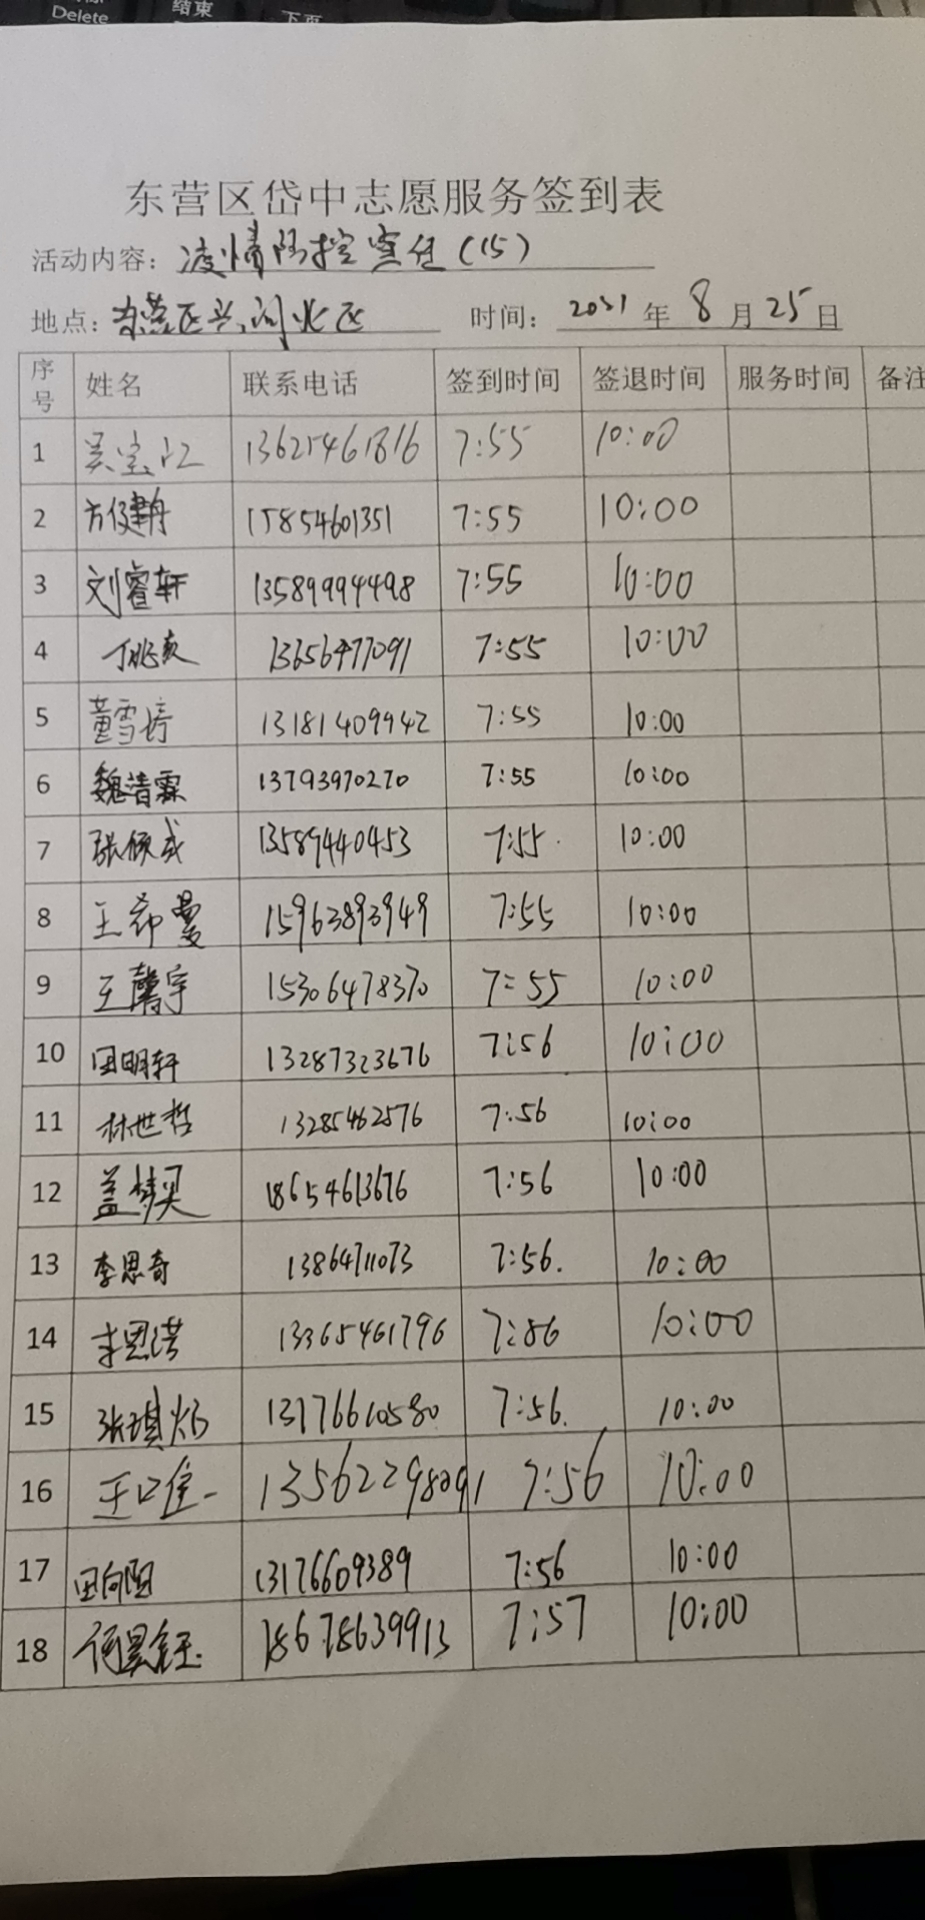 Delete
结束
下页
东营区岱中志愿服务签到表
活动内容: 凌情防控宣任(15)
地点: 东营区 时间: 2021年8月25日
序号 姓名 联系电话 签到时间 签退时间 服务时间 备注
1 吴 13625461816 7:55 10:00
2 方健 15854601351 7:55 10:00
3 刘睿轩 13589994498 7:55 10:00
4 13656477091 7:55 10:00
5 董雪婷 13181409942 7:55 10:00
6 魏浩霖 13793970270 7:55 10:00
7 张 13589440453 7:55 10:00
8 王希曼 15963893949 7:55 10:00
9 王馨宇 15306478370 7:55 10:00
10 田明轩 13287323676 7:56 10:00
11 林世哲 13285462576 7:56 10:00
12 盖梦 18654613676 7:56 10:00
13 李思奇 13864711073 7:56. 10:00
14 李思 13365461796 7:56 10:00
15 张琪 13176610580 7:56. 10:00
16 王 13562298091 7:56 10:00
17 田向阳 13176609389 7:56 10:00
18 何昊钰 18678639913 7:57 10:00